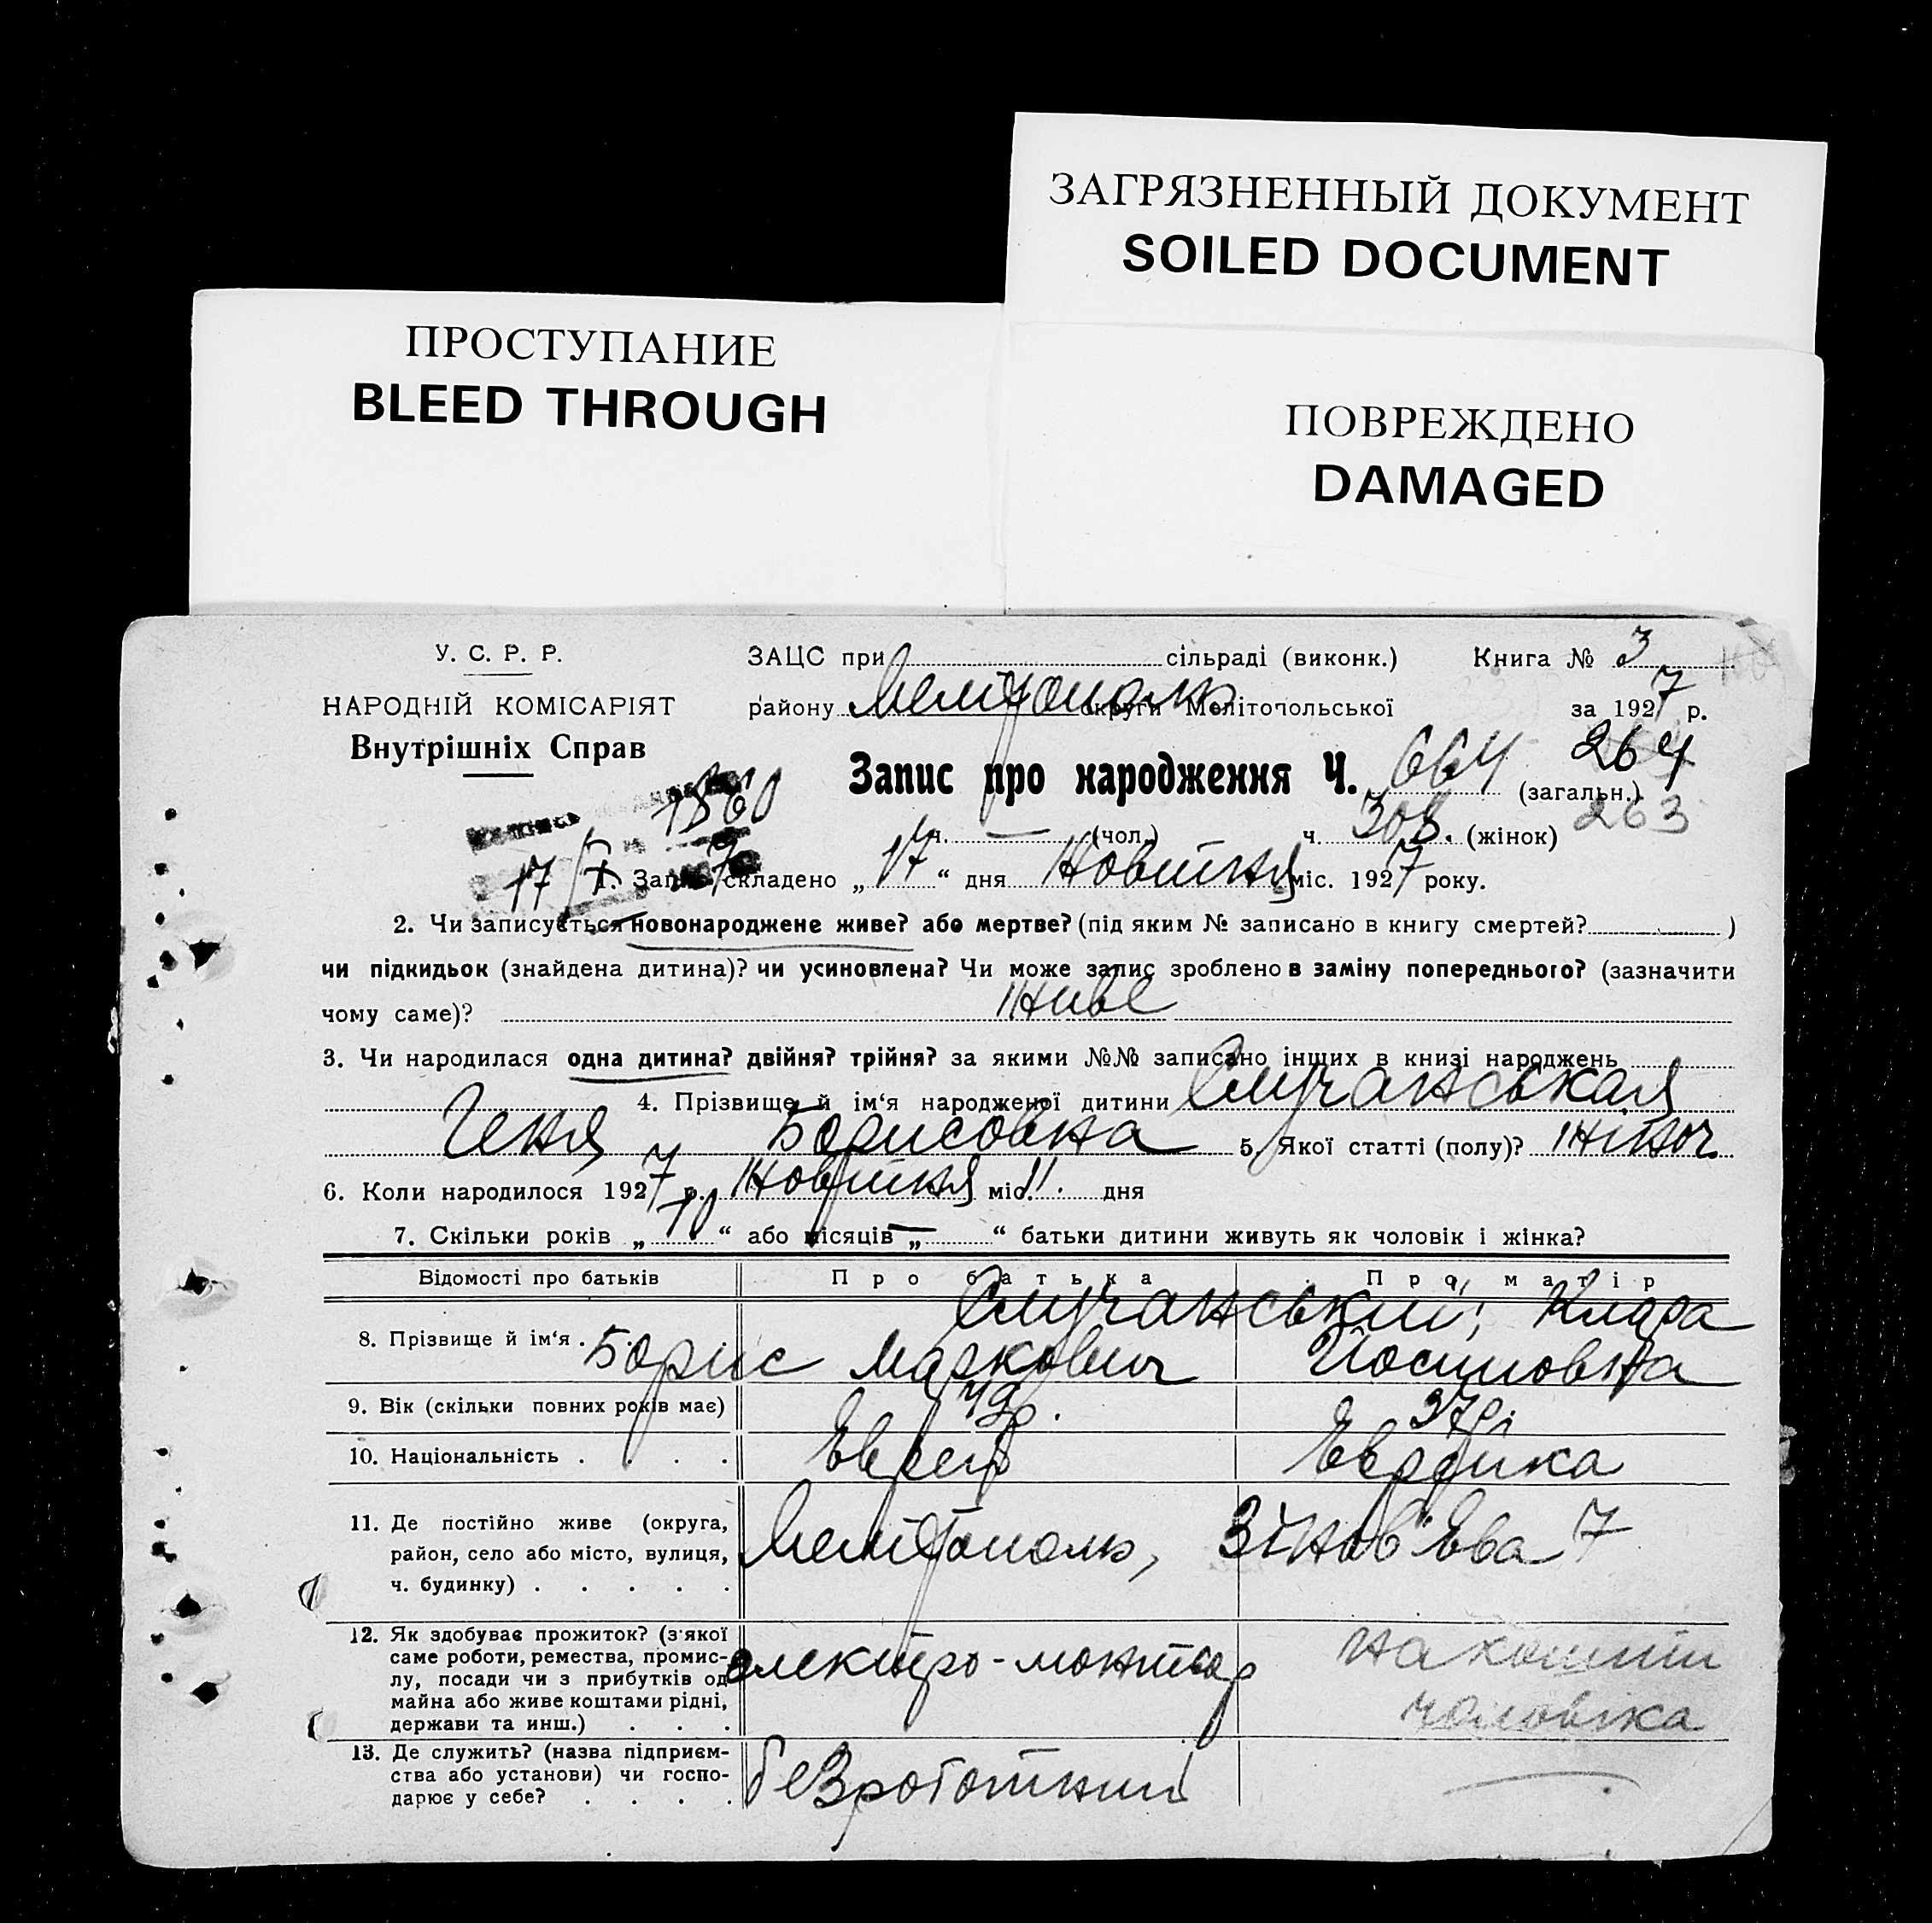 ЗАГРЯЗНЕННЫЙ ДОКУМЕНТ
SOILED DOCUMENT
ПРОСТУПАНИЕ
BLEED THROUGH
ПОВРЕЖДЕНО
DAMAGED
У. С. Р. Р.
НАРОДНІЙ КОМІСАРІЯТ
Внутрішніх Справ
ЗАЦС при сільраді (виконк.) Книга № 3
району Мелітополь округи Мелітопольської за 1927 р.
Запис про народження Ч. 664 264
(загальн.) 263
1860
ч. — (чол.) ч. 308. (жінок)
17/X 7
1. Запис складено „ 17 “ дня Новитня міс. 1927 року.
2. Чи записується новонароджене живе? або мертве? (під яким № записано в книгу смертей? )
чи підкидьок (знайдена дитина)? чи усиновлена? Чи може запис зроблено в заміну попереднього? (зазначити
чому саме)? Живе
3. Чи народилася одна дитина? двійня? трійня? за якими №№ записано інших в книзі народжень
4. Прізвище й ім‘я народженої дитини Случанськая
Геня Борисовна 5. Якої статті (полу)? Жіноч
6. Коли народилося 1927 р. Новитня міс. 11. дня
7. Скільки років „ 10 “ або місяців „ — “ батьки дитини живуть як чоловік і жінка?
Відомості про батьків Про батька Про матір
8. Прізвище й ім‘я . Случанський, Клара
Борис Маркович Йосиповна
9. Вік (скільки повних років має) 42р. 37р.
10. Національність . . . . Еврей Еврейка
11. Де постійно живе (округа,
район, село або місто, вулиця, Мелітополь, Зінов'Ева 7
ч. будинку) . . . . .
12. Як здобуває прожиток? (з'якої
саме роботи, ремества, промис-
лу, посади чи з прибутків од
майна або живе коштами рідні,
держави та инш.) . . .
електро-монтьор
на кошти
чоловіка
13. Де служить? (назва підприєм-
ства або установи) чи госпо-
дарює у себе? . . . .
безроботний —